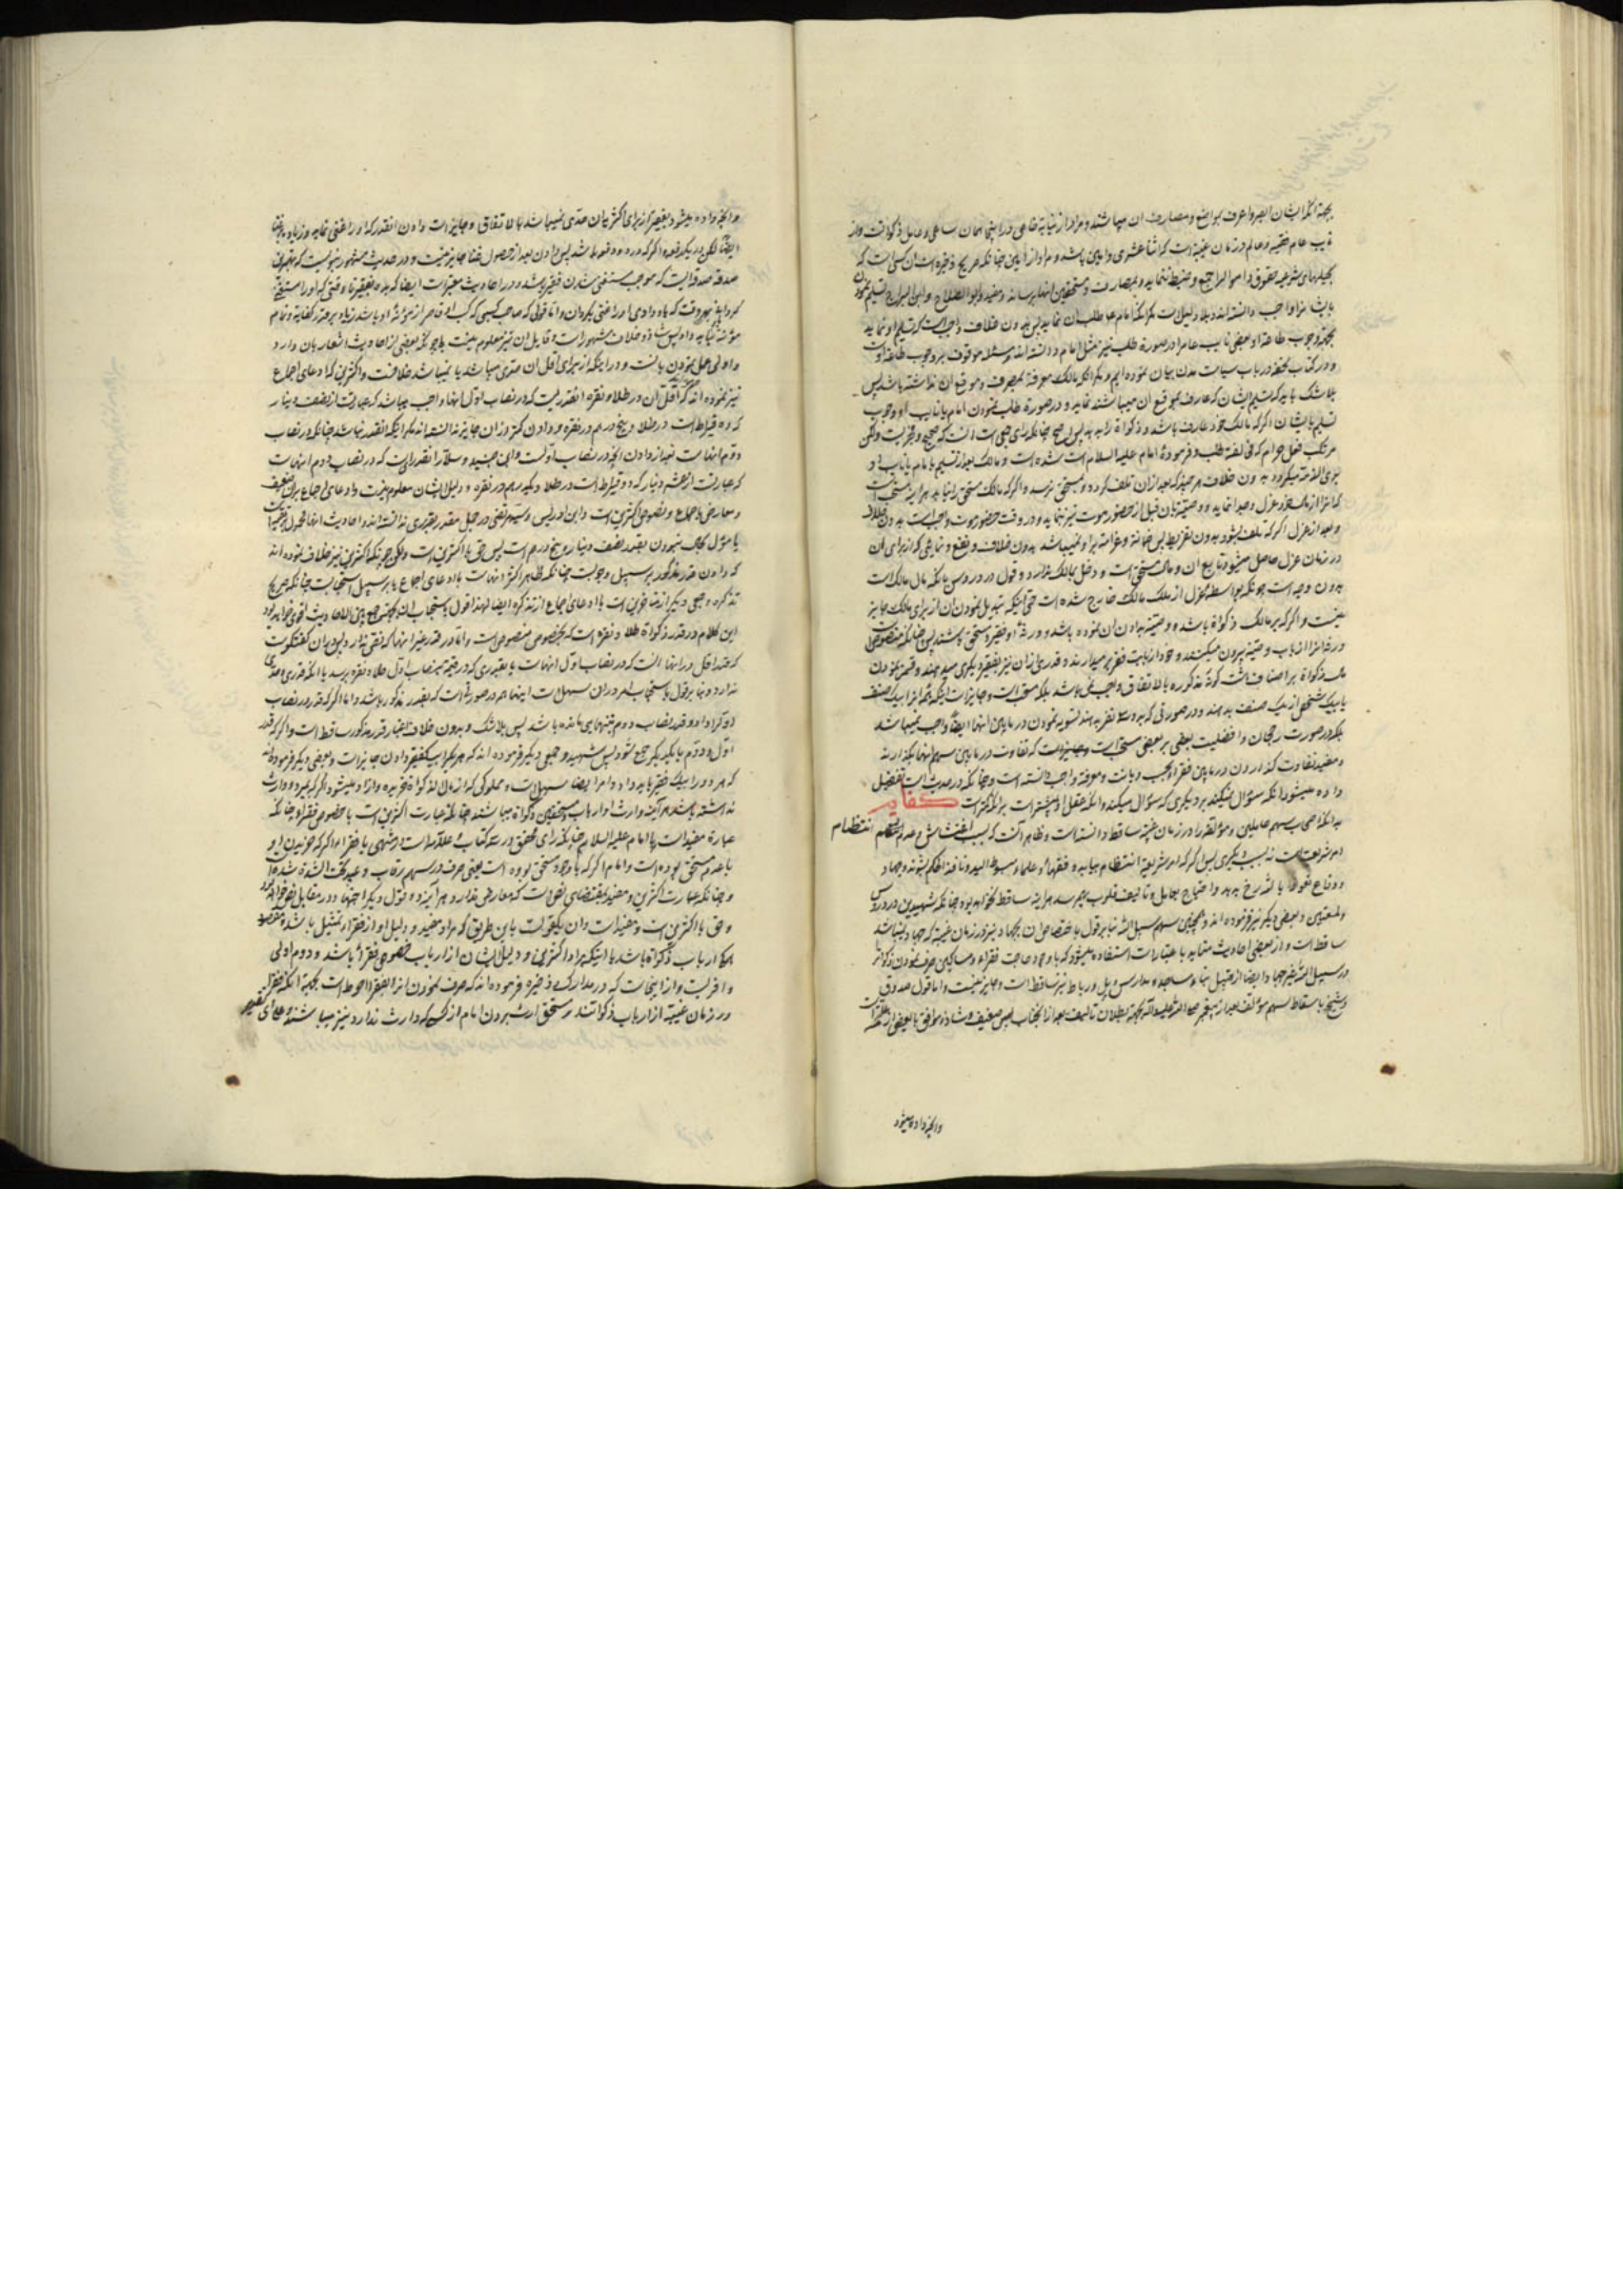 بجهة انکه ایشان ابصر و اعرف بمواضع و مصارف ان میباشند و مراد از نیابة خاص در اینجا همان ساعی و عامل زکواتست و از
نایب عام فقیه و عالم در زمان غیبة است که اثنا عشری و امین باشد و مراد از امین چنانکه صریح ذخیره است ان کسی است که
بحیلهای شرعیه حقوق و اموال را جمع و ضبط ننماید و بمصارف و مستحقین انها برساند و مفید و ابو الصلاح و ابن البراج تسلیم نمودن
بایشانرا واجب دانسته‌اند و بلا دلیل است مکر انکه امام علیه طلب ان نماید پس بدون خلاف واجب است که تسلیم او نماید
بجهة وجوب طاعة او و بعضی نایب عام را در صورة طلب نیز مثل امام دانسته‌اند و مسئله موقوف بر وجوب طاعة اوست
و در کتاب تحفه در باب سیاست مدن بیان نموده‌ایم و مکر انکه مالک معرفة بمصرف و موقع ان نداشته باشد پس
بلا شک باید که تسلیم ایشان که عارف بموقع ان میباشند نماید و در صورة طلب نمودن امام یا نایب او و وجوب
تسلیم بایشان اکر که مالک خود عارف باشد و زکواة را بدهد پس اصح چنانکه رای جمعی است انست که صحیح و مجزیست ولکن
مرتکب فعل حرام که مخالفة طلب و فرموده امام علیه السلام است شده است و مالک بعد از تسلیم بامام یا نایب او
بری الذمه میکردد بدون خلاف هر چند که بعد از ان تلف کردد و بمستحق نرسد و اکر که مالک مستحق را نیابد هر اینه مستحب است
که انرا از مال خود عزل و جدا نماید و وصیة بان قبل از حضور موت نیز نماید و در وقت حضور موت واجب است بدون خلاف
و بعد از عزل اکر که تلف بشود بدون تفریط پس ضمانة و غرامة بر او نمیباشد بدون خلاف و نفع و نمایی که از برای ان
در زمان عزل حاصل میشود تابع ان و مال مستحق است و دخل بمالک ندارد و قول در دروس بانکه مال مالک است
بدون وجه است چونکه بواسطه عزل از ملک مالک خارج شده است حتی اینکه تبدیل نمودن ان از برای مالک جایز
نیست و اکر که بر مالک زکواة باشد و وصیة بدادن ان نموده باشد و ورثه او فقیر و مستحق باشند پس چنانکه منصوص است
ورثه انرا از باب وصیة بیرون میکنند و خود از بابت فقر بر میدارند و قدری از ان نیز بفقیر دیکری میدهند و قسمة نمودن
مال زکواة بر اصناف ثمانیة کونه مذکوره بالاتفاق واجب نمی‌باشد بلکه مستحب است و جایز است اینکه همه انرا بیک صنف
یا بیک شخص از یک صنف بدهند و در صورتی که بدو سه نفر بدهند تسویه نمودن در مابین انها ایضاً واجب نمیباشد
بلکه در صورت رجحان و افضلیت بعضی بر بعضی مستحب است و جایز است که تفاوت در مابین سهم انها بکذارند
و مفید تفاوت کذاردن در مابین فقراء بحسب دیانت و معرفة واجب دانسته است و چنانکه در حدیث است تفضیل
داده میشود انکه سؤال نمیکند بر دیکری که سؤال میکند و انکه عقل او بیشتر است بر انکه کمتر است کفایه
بدانکه اصحاب سهم عاملین و مؤلفه را در زمان غیبة ساقط دانسته است و ظاهر آنست که بسبب اغتشاش و عدم انتظام
امر شریعت است نه بسبب دیکری پس اکر که امر شریعة انتظام بیابد و فقهاء و علماء مبسوط الید و نافذ الحکم بشوند و جهاد
و دفاع نعوذ بالله رخ بدهد و احتیاج بعامل و تالیف قلوب بهم رسد هر اینه ساقط نخواهد بود چنانکه شهیدین در دروس
و لمعتین و بعضی دیکر نیز فرموده‌اند و همچنین سهم سبیل الله بنا بر قول باختصاص ان بجهاد نیز در زمان غیبة که جهاد نمیباشد
ساقط است و از بعضی احادیث مشابه با عبارات استفاده میشود که با وجود حاجت فقراء و مساکین صرف نمودن زکواة
در سبیل الله غیر جهاد ایضا از قبیل بناء مساجد و مدارس و پل و رباط نیز ساقط است و جایز نیست و اما قول صدوق
و شیخ باسقاط سهم مؤلفه بعد از پیغمبر صلی الله علیه و آله بجهة بطلان تالیف بعد از انجناب پس ضعیف و شاذ و موافق با بعضی از عامه است
وانچه داده میشود
وانچه داده میشود بفقیر از برای اکثر ان حدّی نمیباشد بالاتفاق و جایز است دادن انقدر که او را غنی نماید و زیاده بر غنا
ایضاً لکن در یکدفعه و اکر که در دو دفعه باشد پس دادن بعد از حصول غنا جایز نیست و در حدیث مشهور نبویست که بهترین
صدقه صدقه ایست که موجب مستغنی شدن فقیر باشد و در احادیث معتبر است ایضا که بده بفقیر تا وقتی که او را مستغنی
کردانی و هر وقت که باو دادی او را غنی بکردان و اما قولی که صاحب کسبی که کسب او قاصر از مؤنه او باشد زیاد بر قدر کفایة و تمام
مؤنه نباید داد پس شاذ و خلاف مشهور است و قایل ان نیز معلوم نیست با وجود انکه بعضی از احادیث اشعار بان دارد
و اولی حمل نمودن بانست و در اینکه از برای اقل ان حدّی میباشد یا نمیباشد خلافست و اکثرین که ادعای اجماع
نیز نموده‌اند که اقل ان در طلا و نقره انقدریست که در نصاب اول انها واجب میباشد که عبارتست از نصف دینار
که ده قیراط است در طلا و پنج درهم در نقره و دادن کمتر از ان جایز ندانسته‌اند مکر اینکه انقدر نباشد چنانکه در نصاب
دوم انهاست بعد از دادن انچه در نصاب اولست و ابن جنید و سلار انقدریست که در نصاب دوم انهاست
که عبارتست از عشر دینار که دو قیراط است در طلا و یکدرهم در نقره و دلیل ایشان معلوم نیست و ادعای اجماع بران ضعیف
و معارض باجماع و نصوص اکثرین است و ابن ادریس و سید مرتضی در جمل مقدر بقدری ندانسته‌اند و احادیث انها محمول بر تقیه
یا مؤل بکافی نبودن بقدر نصف دینار و پنج درهم است پس حق با اکثرین است ولکن چونکه اکثرین نیز خلاف نموده‌اند
که دادن قدر مذکور بر سبیل وجوبست چنانکه ظاهر اکثر انهاست با ادعای اجماع یا بر سبیل استحبابست چنانکه صریح
تذکره و جمعی دیکر از متاخرین است با ادعای اجماع از تذکره ایضا لهذا قول باستحباب ان بجهة جمع بین الاحادیث اقوی خواهد بود
این کلام در قدر زکواة طلا و نقره است که بخصوص منصوص است و اما در قدر غیر انها که نصی ندارد پس در ان گفتکوست
که قدر اقل در انها انست که در نصاب اول انهاست یا بقدری که در قیمة بنصاب اول طلا و نقره برسد یا انکه قدری و حدی
ندارد و بنا بر قول باستحباب امر در ان سهل است اینها همه در صورتی است که بقدر مذکور باشد و اما اکر که قدر در نصاب
اول را داد و قدر نصاب دوم تنهایی مانده باشد پس بلا شک و بدون خلاف اعتبار قدر مذکور ساقط است و اکر که قدر
اول و دوم با یکدیکر جمع شود پس شهید و جمعی دیکر فرموده‌اند که هر یکرا بیک فقیر دادن جایز است و بعضی دیکر فرموده‌اند
که هر دو را بیک فقیر باید داد و امر ایضا سهل است و مملوکی که از مال زکواة خریده و ازاد میشود اکر که بمیرد و وارث
نداشته باشد هر آینه وارث او ارباب و مستحقین زکواة میباشند چنانکه عبارت اکثرین است یا خصوص فقراء چنانکه
عبارة مفید است یا امام علیه السلام چنانکه رای محقق در سه کتاب علامه است در منتهی یا فقراء اکر که خریدن او
با عدم مستحق بوده است و امام اکر که با وجود مستحق بوده است یعنی صرف در سهم رقاب و عبید تحت الشدة شده است
و چنانکه عبارت اکثرین و مفید مقتضای نص است که معارض ندارد هر آینه دو قول دیکر اجتهاد در مقابل نص خواهد بود
و حق با اکثرین است و مفید است و ان یکقولست باین طریق که مراد مفید و دلیل او از فقراء تمثیل باشد و مقصود
همه ارباب زکواة باشد یا اینکه مراد اکثرین و دلیل ایشان از ارباب خصوص فقراء باشد و دوم اولی
و اقربست و از اینجاست که در مدارک و ذخیره فرموده‌اند که صرف نمودن انرا بفقرا احوط است بجهة انکه فقرا
در زمان غیبة از ارباب زکواتند و مستحق ارث بردن امام از کسی که وارث ندارد نیز میباشند و دعای فقیر